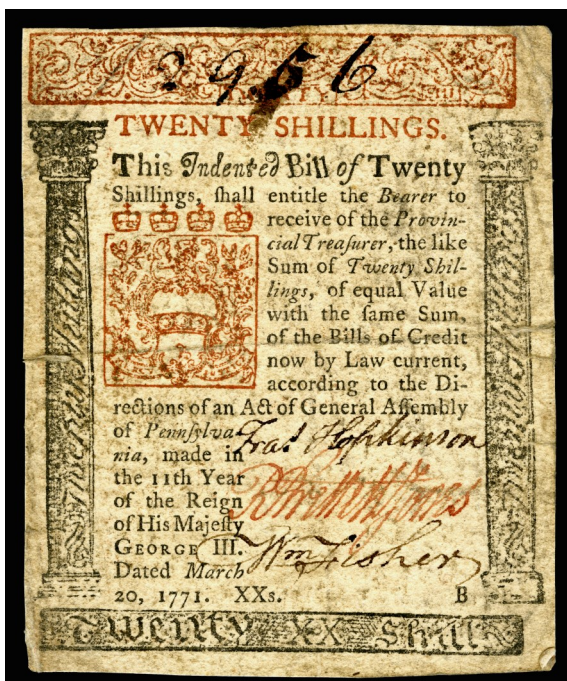 2956
TWENTY SHILLINGS.
This Indented Bill of Twenty
Shillings, ſhall entitle the Bearer to
receive of the Provin-
cial Treaſurer, the like
Sum of Twenty Shil-
lings, of equal Value
with the ſame Sum,
of the Bills of Credit
now by Law current,
according to the Di-
rections of an Act of General Aſſembly
of Pennſylva-
nia, made in
the 11th Year
of the Reign
of His Majeſty
GEORGE III.
Dated March
20, 1771. XXs. B
Fraˢ Hopkinson
Wm Fisher
Twenty XX Shill